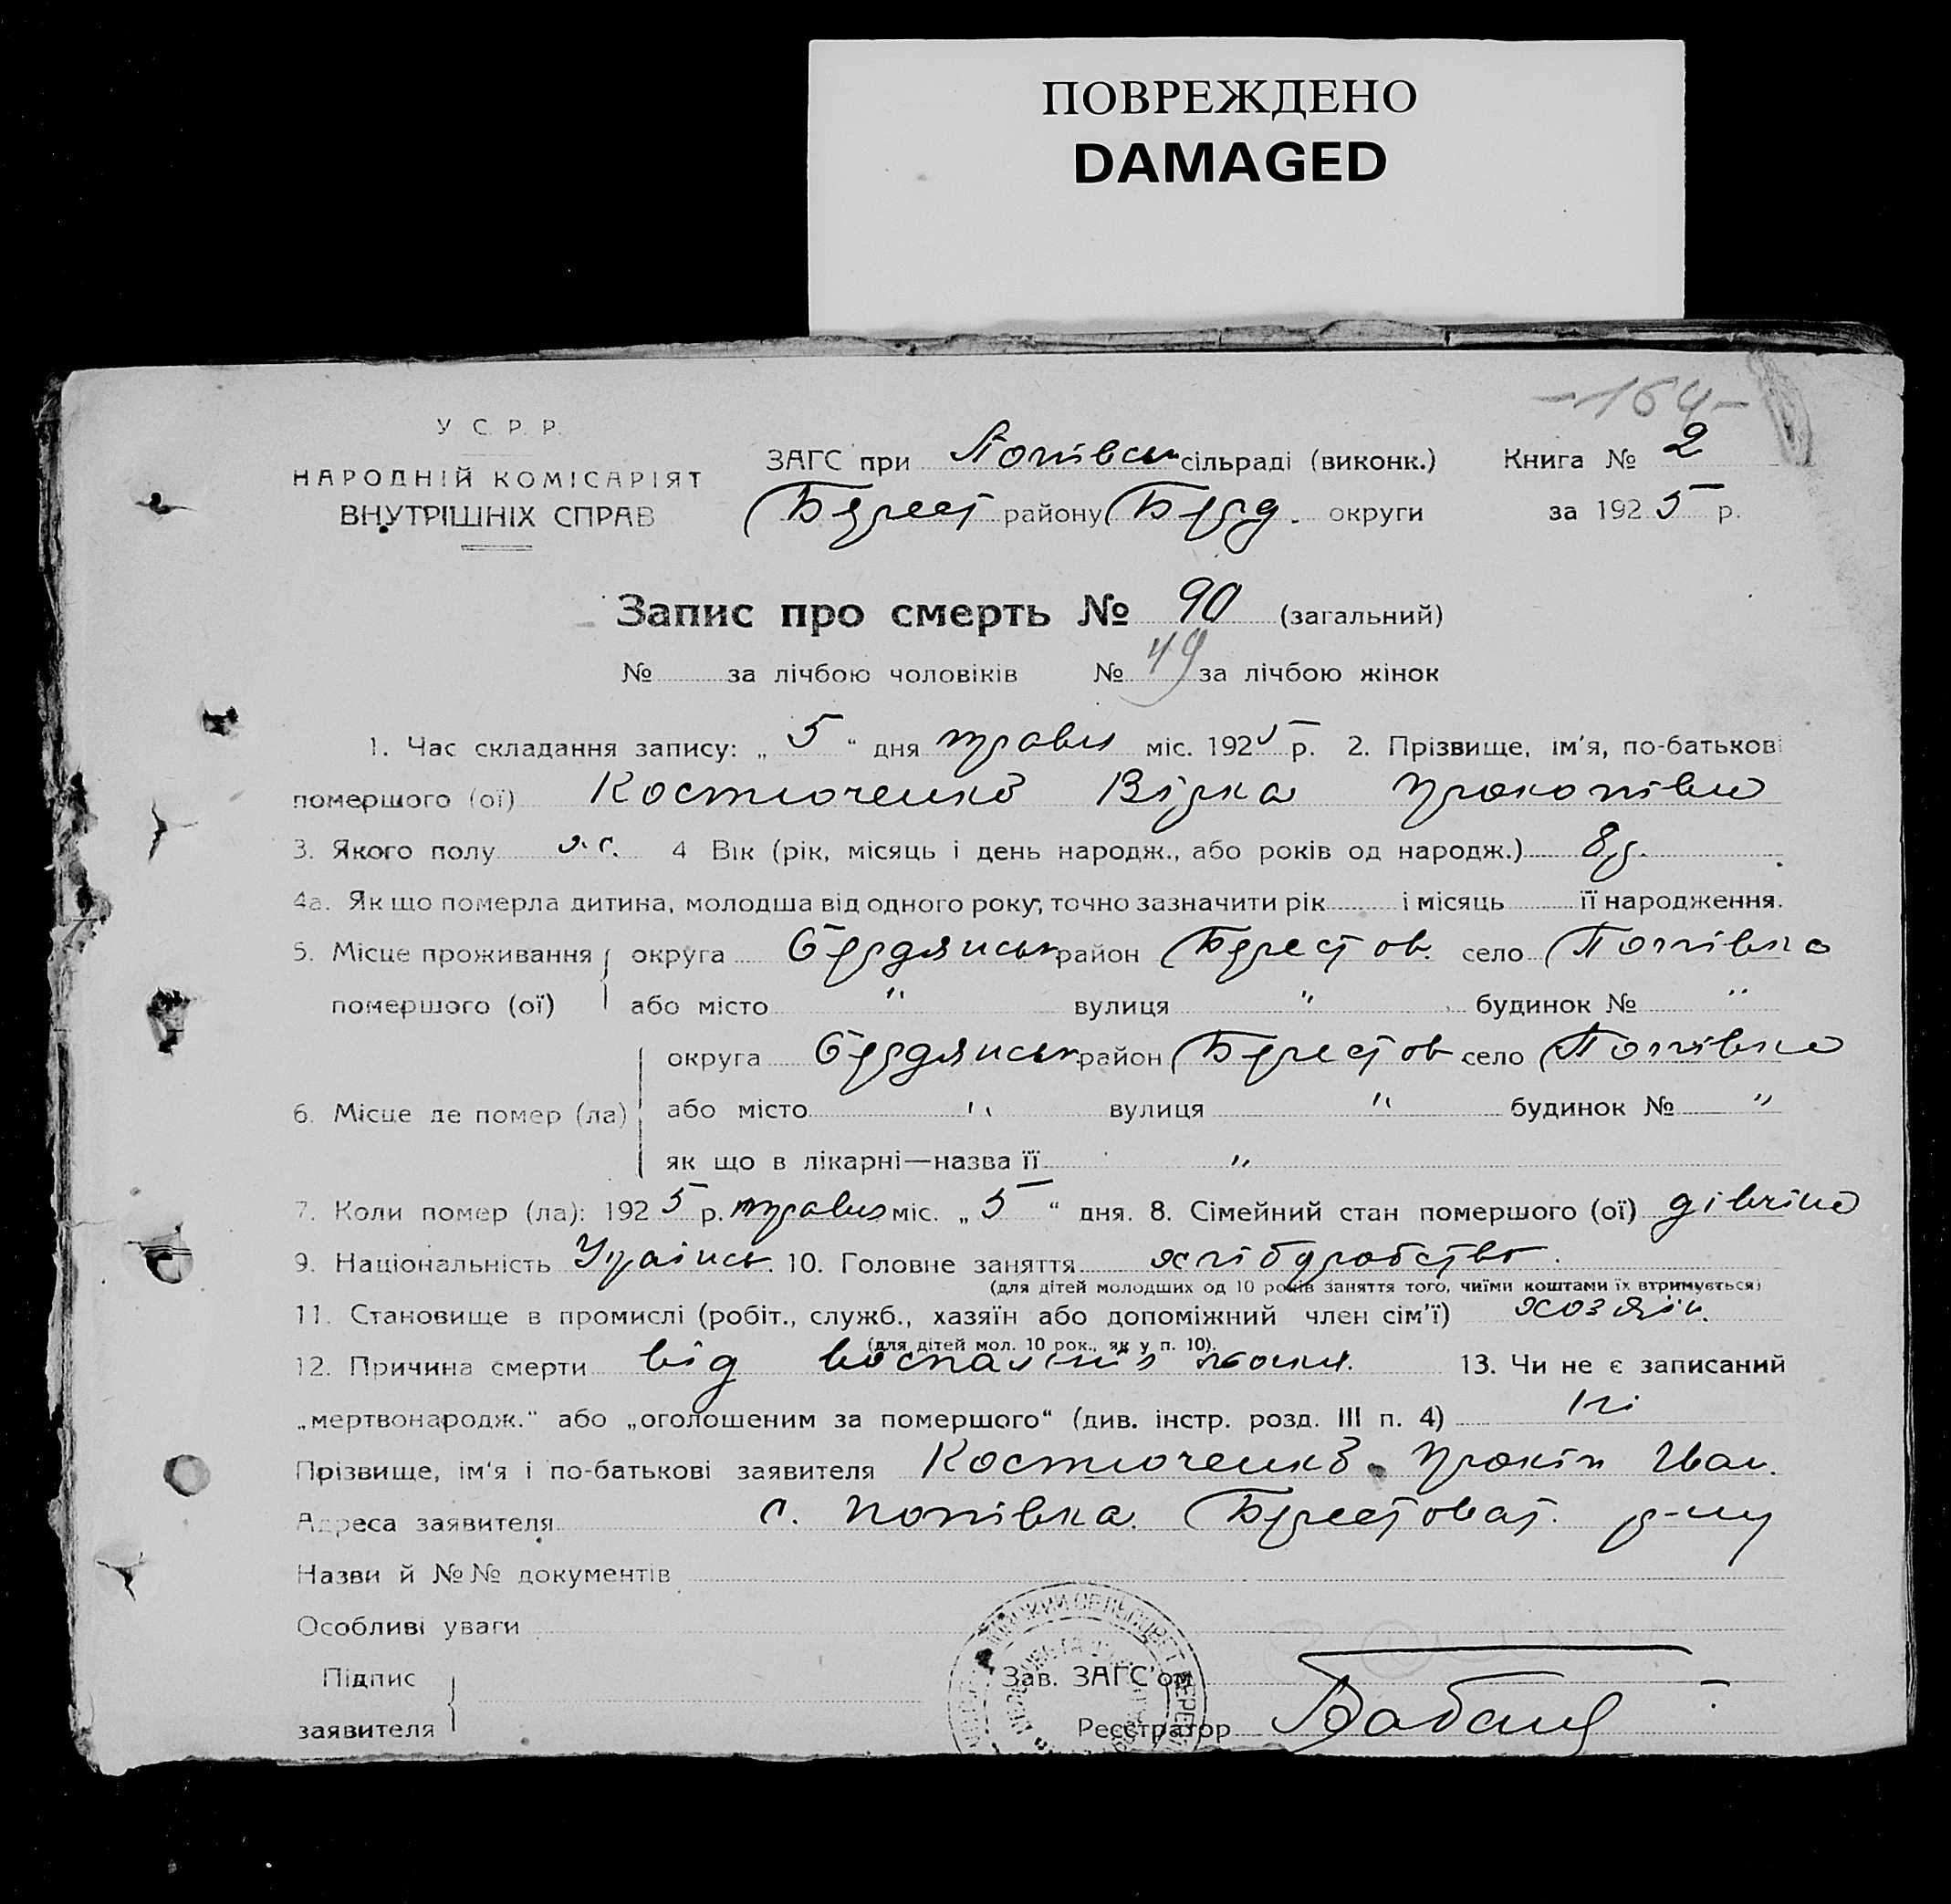 ПОВРЕЖДЕНО
DAMAGED
-164-
У. С. Р. Р.
НАРОДНІЙ КОМІСАРІЯТ
ВНУТРІШНІХ СПРАВ
ЗАГС при Попівськ сільраді (виконк.) Книга № 2
Берест району Берд. округи за 1925 р.
Запис про смерть № 90 (загальний)
№ за лічбою чоловіків № 49 за лічбою жінок
1. Час складання запису: „5“ дня травня міс. 1925 р. 2. Прізвище, ім'я, по-батькові
помершого (ої) Костюченко Вірка Прокопівна
3. Якого полу ж. 4 Вік (рік, місяць і день народж., або років од народж.) 8 р.
4а. Як що померла дитина, молодша від одного року, точно зазначити рік і місяць її народження.
5. Місце проживання округа Бердянськ район Берестов. село Попівка
помершого (ої) або місто " вулиця " будинок № "
округа Бердянськ район Берестов село Попівка
6. Місце де помер (ла) або місто " вулиця " будинок № "
як що в лікарні—назва її "
7. Коли помер (ла): 1925 р. травня міс. „5“ дня. 8. Сімейний стан помершого (ої) дівчина
9. Національність Україньс. 10. Головне заняття хліборобство.
(для дітей молодших од 10 років заняття того, чиїми коштами їх втримується)
11. Становище в промислі (робіт., служб., хазяїн або допоміжний член сім'ї) хозяїн.
(для дітей мол. 10 рок., як у п. 10).
12. Причина смерти від воспалиния 13. Чи не є записаний
„мертвонародж.“ або „оголошеним за помершого“ (див. інстр. розд. III п. 4) Ні
Прізвище, ім'я і по-батькові заявителя Костюченко Прокіп Іван.
Адреса заявителя с. Попівка Берестоват. р-ну
Назви й №№ документів
Особливі уваги
Підпис Зав. ЗАГС'ом
заявителя Реєстратор